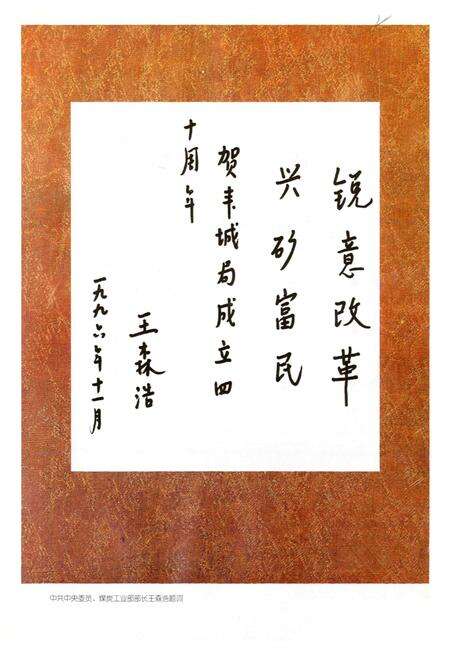 锐意改革
兴矿富民
贺丰城局成立四
十周年
王森浩
一九九六年十一月
中共中央委员、煤炭工业部部长王森浩题词